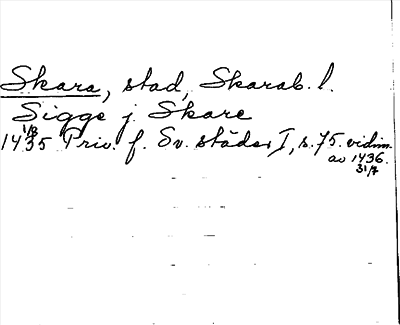 Skara, stad, Skarab. l.
Sigge j Skare
1435 1/8 Priv. f. Sv. städer I, s. 75. vidim.
av 1436.
31/7